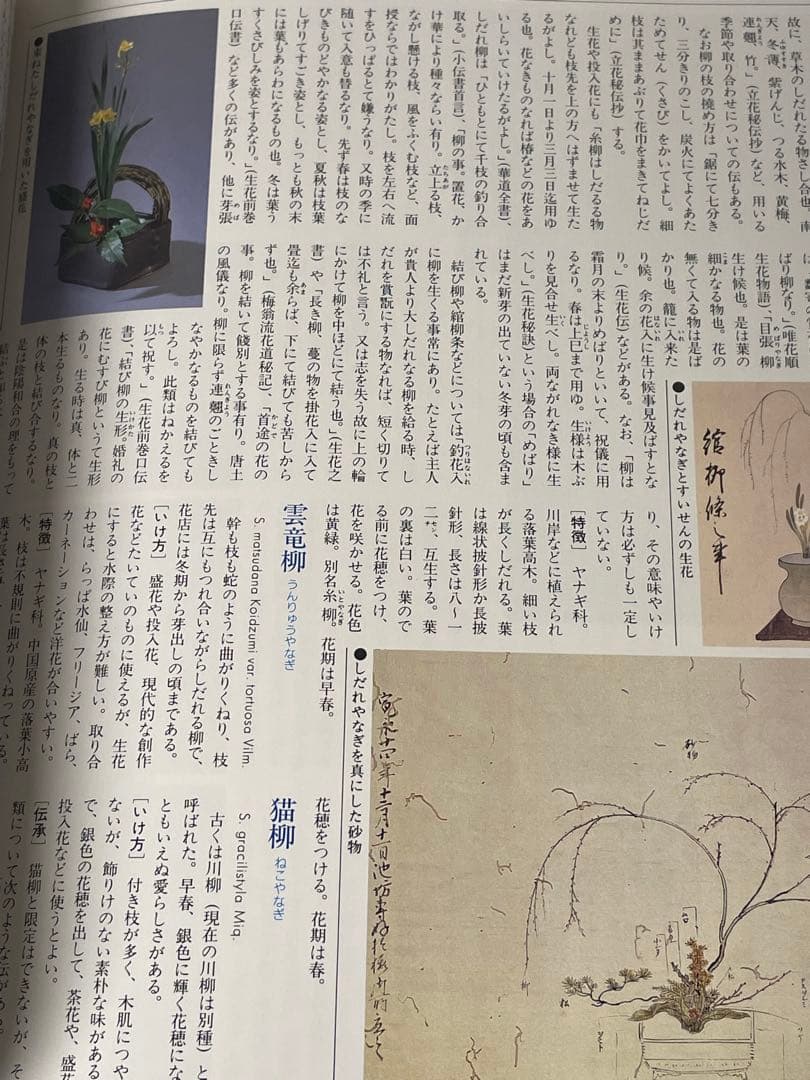 故に、草木のしだれたる物さし合也。南
天、冬薄、紫げんじ、つる水木、黄梅、
連翹、竹。」(立花秘伝抄)など、用いる
季節や取り合わせについての伝もある。
なお柳の枝の撓め方は「鋸にて七分き
り、三分きりのこし、炭火にてよくあた
ためてせん(くさび)をかいてよし。細
枝は其ままあぶりて花巾をまきてねじだ
めに」(立花秘伝抄)する。
生花や投入花にも「糸柳はしだるる物
なれども枝先を上の方へはずませて生た
るがよし。十月一日より三月三日迄用ゆ
る也。花なきものなれば椿などの花をあ
いしらいていけたるがよし。」(華道全書)、
しだれ柳は「ひともとにて千枝の釣り合
取る。」(小伝書首言)、「柳の事。置花、か
け華により種々ならい有り。立上る枝、
ながし懸ける枝、風をふくむ枝など、面
授ならではわかりがたし。枝を左右へ流
すをひっぱるとて嫌うなり。又時の季に
随いて入意も替るなり。先ず春は枝のな
びきものどやかなる姿とし、夏秋は枝葉
しげりてすごき姿とし、もっとも秋の末
には葉もあらわになるもの也。冬は葉う
すくさびしみを姿とするなり。」(生花前巻
口伝書)など多くの伝があり、他に芽張
●束ねたしだれやなぎを用いた盛花
ばり柳なり。」(唯花順
生花物語)、「目張柳
生け候也。是は葉の
細かなる物也。花の
無くて入る物は是ば
かり也。籠に入来た
り候。余の花入に生け候事見及ばすとな
り。」(生花伝)などがある。なお、「柳は
霜月の末よりめばりといいて、祝儀に用
るなり。春は上巳まで用ゆ。生様は木ぶ
りを見合せ生べし。両ながれなき様に生
べし。」(生花秘訣)という場合の「めばり」
はまだ新芽の出ていない冬芽の頃も含ま
れている。
結び柳や綰柳条などについては「釣花入
に柳を生くる事常にあり。たとえば主人
が貴人より大しだれなる柳を給る時、し
だれを賞翫にする物なれば、短く切りて
は不礼と言う。又は志を失う故に上の輪
にかけて柳を中ほどにて結う也。」(生花之
書)や「長き柳、蔓の物を掛花入に入て
畳迄も余らば、下にて結びても苦しから
ず也。」(梅翁流花道秘記)、「首途の花の
事。柳を結いて餞別とする事有り。唐土
の風儀なり。柳に限らず連翹のごときし
なやかなるものを結びても
よろし。此類はねかえるを
以て祝す。」(生花前巻口伝
書)、「結び柳の生形。婚礼の
花にむすび柳というて生形
あり。生る時は真、体と二
本生るものなり。真の枝と
体の枝と結び合するなり。
是は陰陽和合の理をもって
●しだれやなぎとすいせんの生花
綰柳條之筆
り、その意味やいけ
方は必ずしも一定し
ていない。
[特徴] ヤナギ科。
川岸などに植えられ
る落葉高木。細い枝
が長くしだれる。葉
は線状披針形か長披
針形、長さは八〜一
二㌢、互生する。葉
の裏は白い。葉ので
る前に花穂をつけ、
花を咲かせる。花色
は黄緑。別名糸柳。花期は早春。
雲竜柳 うんりゅうやなぎ
S. matsudana Koidzumi var. tortuosa Vilm.
幹も枝も蛇のように曲がりくねり、枝
先は互にもつれ合いながらしだれる柳で、
花店には冬期から芽出しの頃まである。
[いけ方] 盛花や投入花、現代的な創作
花などたいていのものに使えるが、生花
にすると水際の整え方が難しい。取り合
わせは、らっぱ水仙、フリージア、ばら、
カーネーションなど洋花が合いやすい。
[特徴] ヤナギ科。中国原産の落葉小高
木。枝は不規則に曲がりくねっている。
●しだれやなぎを真にした砂物
砂物
松
花穂をつける。花期は春。
猫柳 ねこやなぎ
S. gracilistyla Miq.
古くは川柳(現在の川柳は別種)と
呼ばれた。早春、銀色に輝く花穂にな
ともいえぬ愛らしさがある。
[いけ方] 付き枝が多く、木肌につや
ないが、飾りけのない素朴な味がある
で、銀色の花穂を出して、茶花や、盛花
投入花などに使うとよい。
[伝承] 猫柳と限定はできないが、そ
類について次のような伝がある。